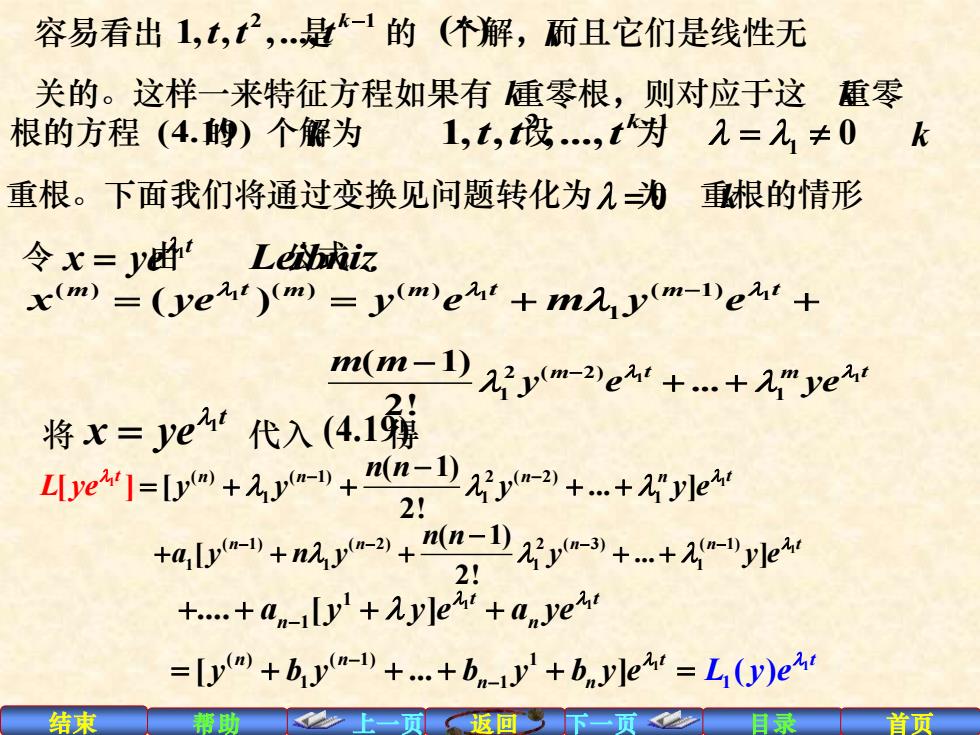 容易看出 1, t, t², ..., t^{k-1} 是 的 (*) 个解，而且它们是线性无
关的。这样一来特征方程如果有 k 重零根，则对应于这 k 重零
根的方程 (4.19) 的 k 个解为 1, t, t², ..., t^{k-1} 设 为 λ = λ₁ ≠ 0 k
重根。下面我们将通过变换见问题转化为 λ = 0 为 k 重根的情形
令 x = ye^{λ₁t} 由 Leibniz 公式
x^{(m)} = (ye^{λ₁t})^{(m)} = y^{(m)}e^{λ₁t} + mλ₁y^{(m-1)}e^{λ₁t} +
m(m-1)/2! λ₁²y^{(m-2)}e^{λ₁t} + ... + λ₁^m ye^{λ₁t}
将 x = ye^{λ₁t} 代入 (4.19) 得
L[ye^{λ₁t}] = [y^{(n)} + λ₁y^{(n-1)} + n(n-1)/2! λ₁²y^{(n-2)} + ... + λ₁^n y]e^{λ₁t}
+a₁[y^{(n-1)} + nλ₁y^{(n-2)} + n(n-1)/2! λ₁²y^{(n-3)} + ... + λ₁^{(n-1)}y]e^{λ₁t}
+.... + a_{n-1}[y¹ + λy]e^{λ₁t} + a_n ye^{λ₁t}
= [y^{(n)} + b₁y^{(n-1)} + ... + b_{n-1}y¹ + b_n y]e^{λ₁t} = L₁(y)e^{λ₁t}
结束 帮助 上一页 返回 下一页 目录 首页